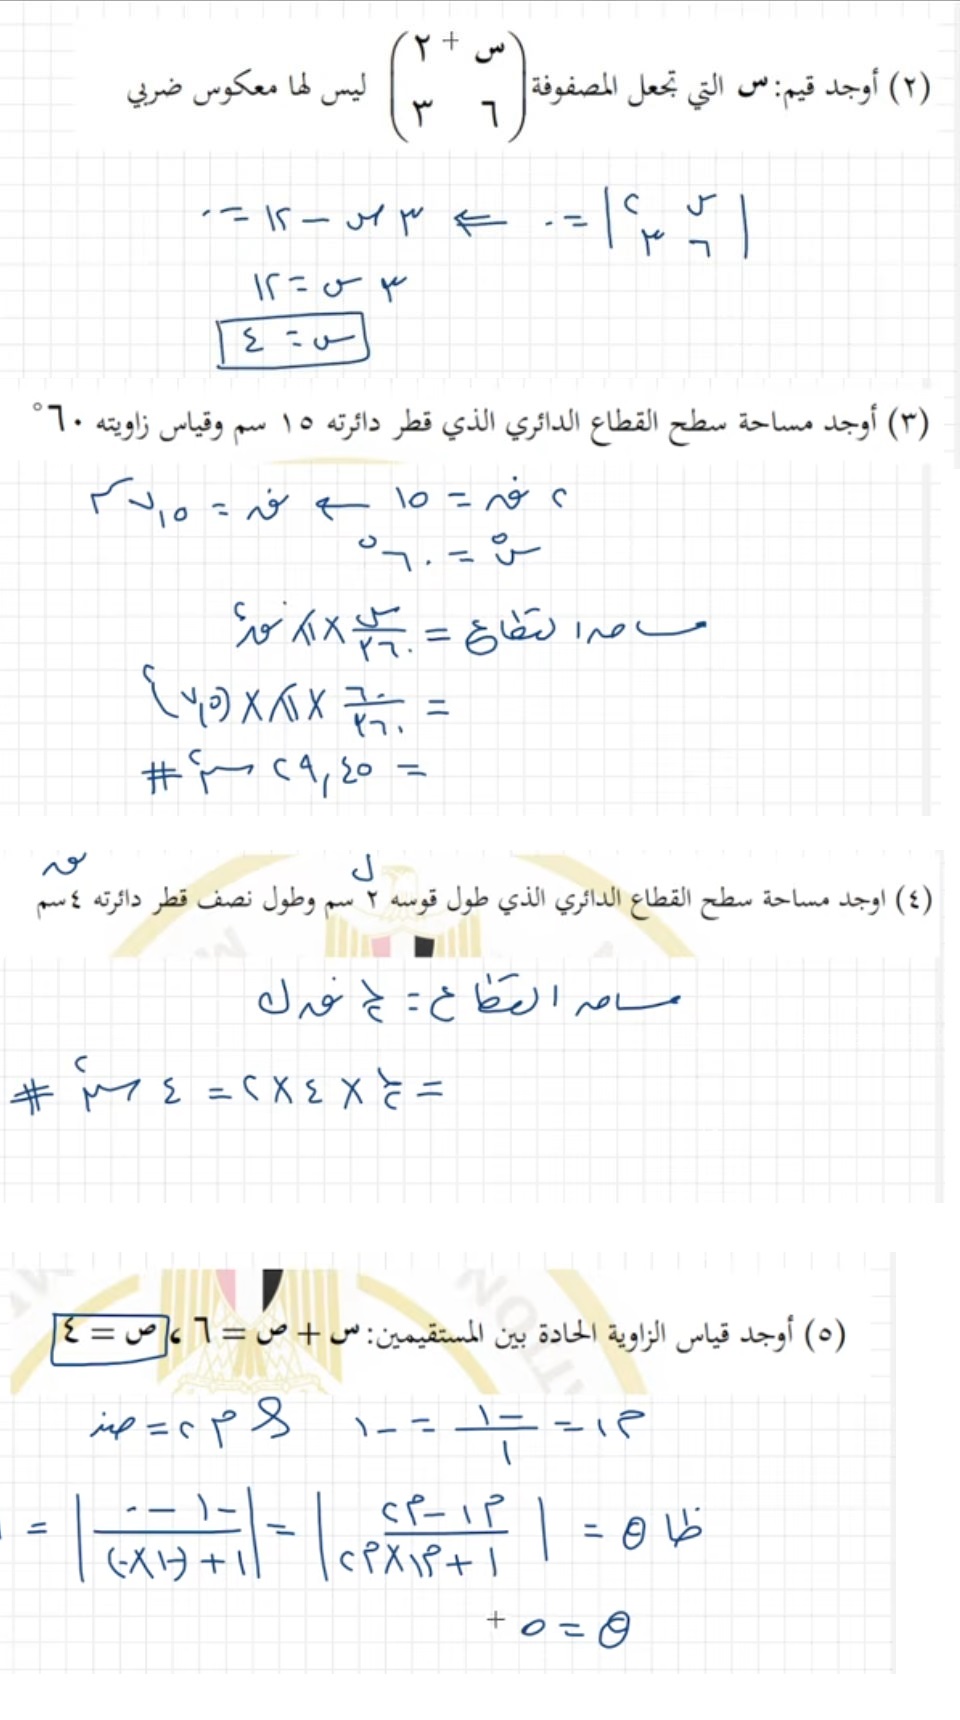 (٢) أوجد قيم: س التي تجعل المصفوفة (س ٢ ٦ ٣) ليس لها معكوس ضربي
|س ٢ ٦ ٣| = ٠ ⇐ ٣ س − ١٢ = ٠
٣ س = ١٢
س = ٤
(٣) أوجد مساحة سطح القطاع الدائري الذي قطر دائرته ١٥ سم وقياس زاويته ٦٠°
٢ نق = ١٥ ← نق = ٧,٥ سم
س° = ٦٠°
مساحة القطاع = س/٣٦٠ × π نق٢
= ٦٠/٣٦٠ × π × (٧,٥)٢
= ٢٩,٤٥ سم٢ #
ل نق
(٤) اوجد مساحة سطح القطاع الدائري الذي طول قوسه ٢ سم وطول نصف قطر دائرته ٤ سم
مساحة القطاع = ١/٢ نق ل
= ١/٢ × ٤ × ٢ = ٤ سم٢ #
(٥) أوجد قياس الزاوية الحادة بين المستقيمين: س + ص = ٦ ، ص = ٤
م١ = −١/١ = −١ & م٢ = صفر
ظا θ = |م١ − م٢ / ١ + م١ × م٢| = |−١ − ٠ / ١ + (−١ × ٠)| =
θ = ٥